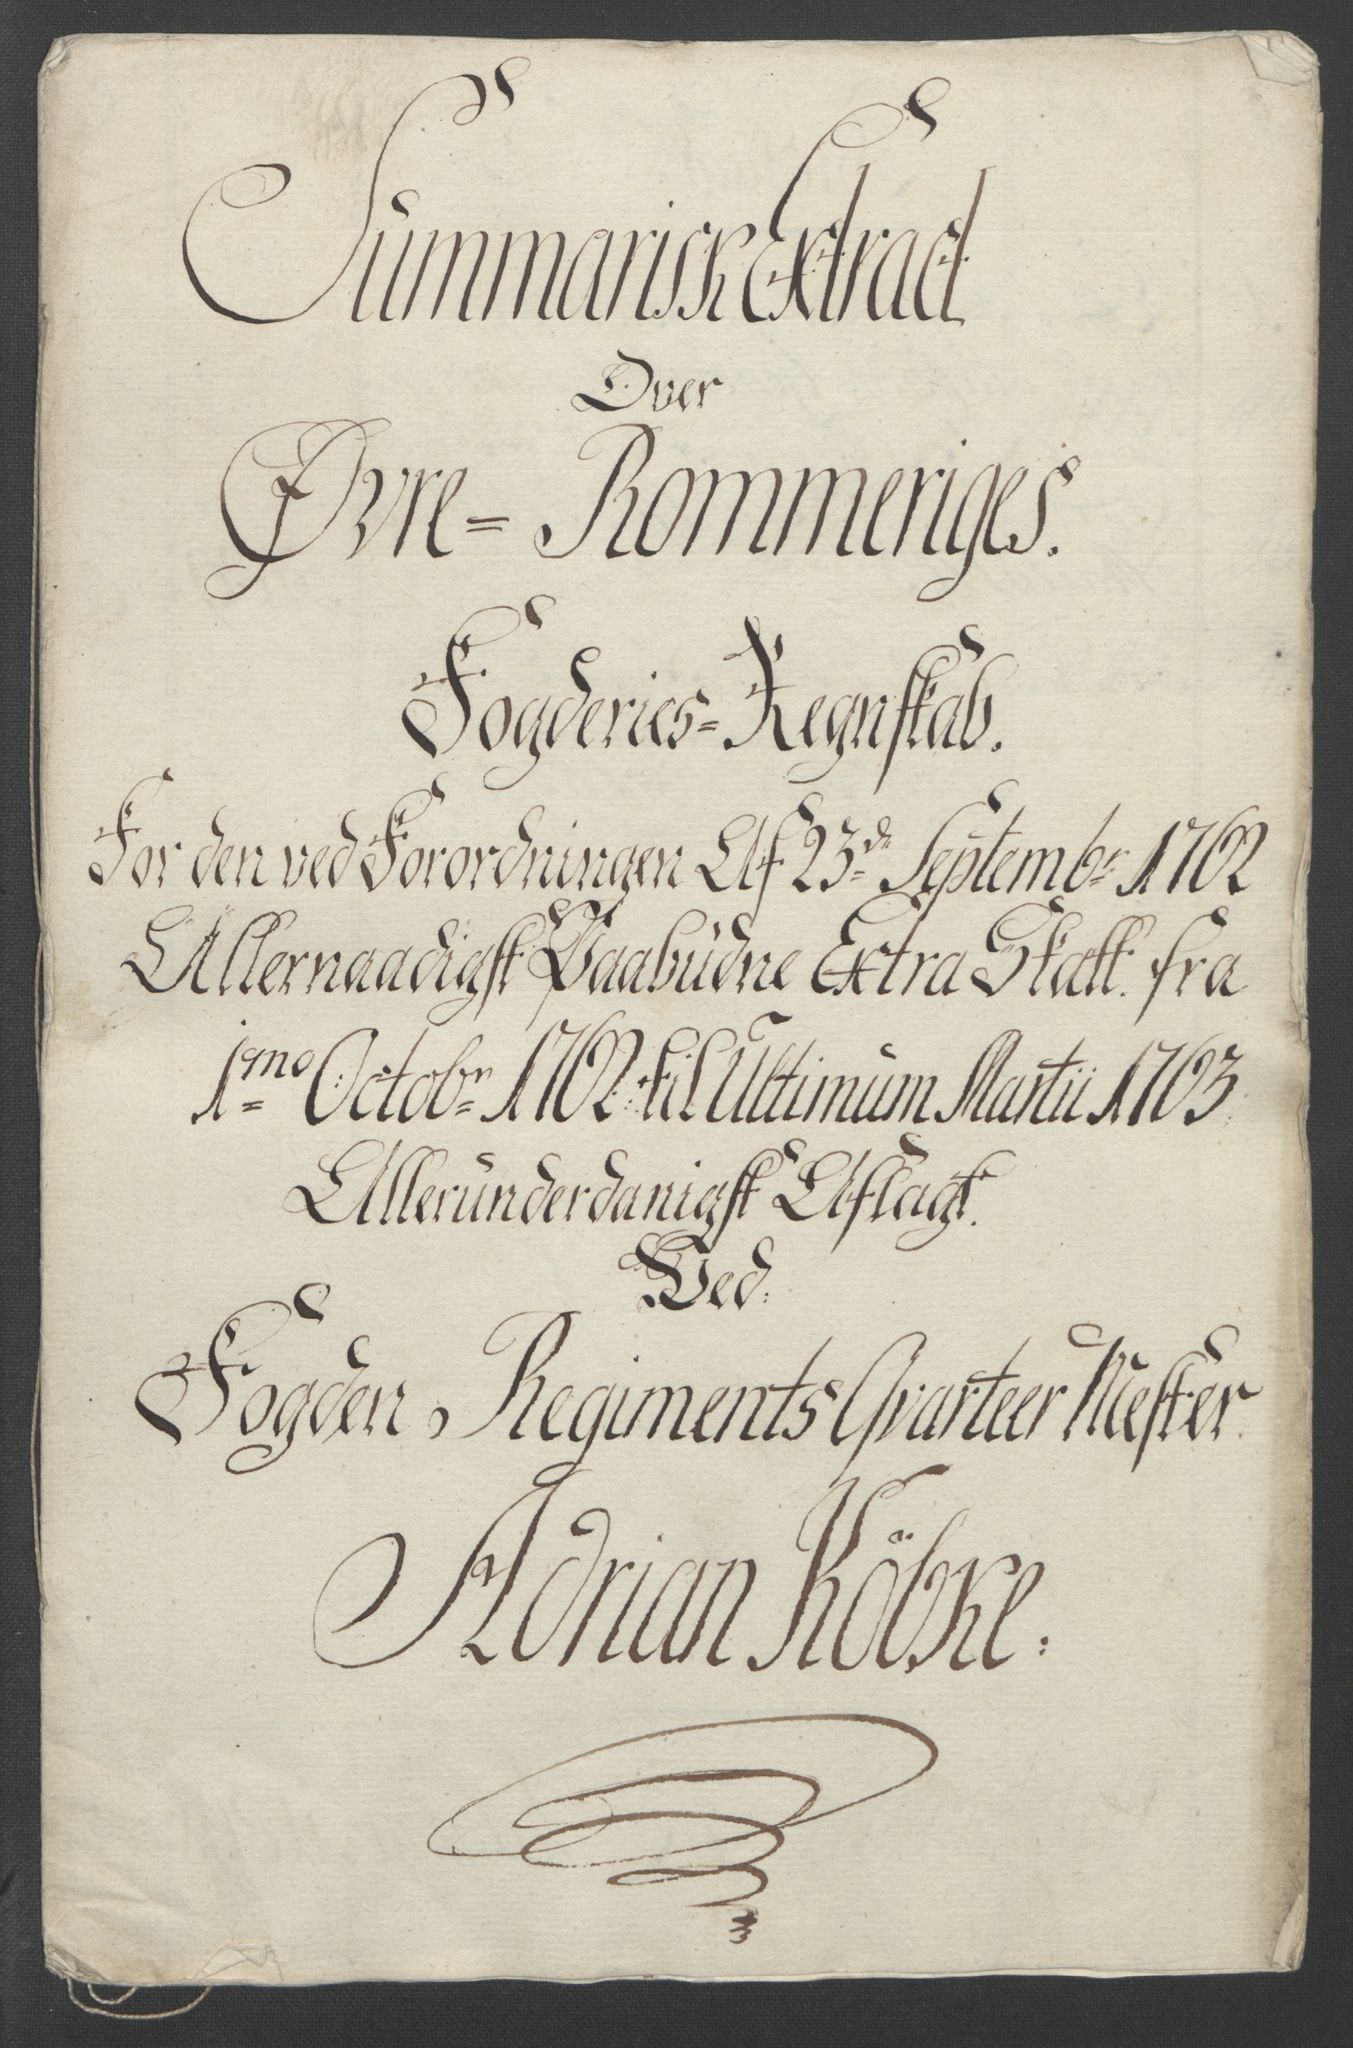 Summarisk Extract
Over
Øvre= Rommeriges.
Fogderies= Regnskab.
For den ved Forordningen Af 23de Septembr 1762
Allernaadigst Paabüdne Extra Skatt fra
1mo Octobr 1762 til Ultimum Martii 1763
Alleründerdanigst Aflagt.
Ved.
Fogden, Regiments Qvarteer Mester.
Adrian Köbke.